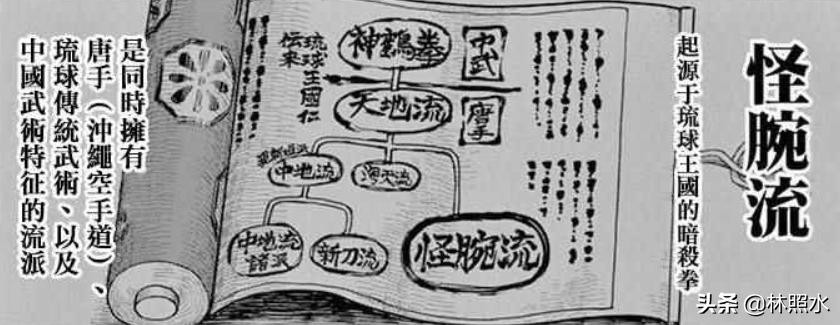 怪腕流
起源于琉球王國的暗殺拳
中武
唐手
神鶴拳
琉球王國仁
伝来
天地流
中地流
海天流
中地流
諸派
新刀流
怪腕流
是同時擁有
唐手（沖繩空手道）、
琉球傳統武術、以及
中國武術特征的流派
头条 @林照水